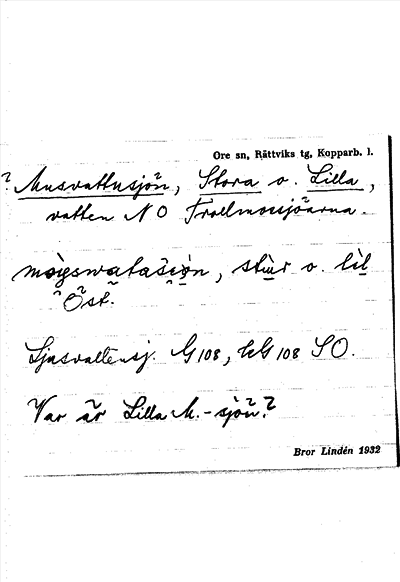 Ore sn, Rättviks tg, Kopparb. l.
? Musvattusjön, Stora o. Lilla,
vatten N O Trollmorsjöarna.
stùr o. lìl
Öst.
G 108, EG 108 S O.
Var är Lilla M.-sjön?
Bror Lindén 1932